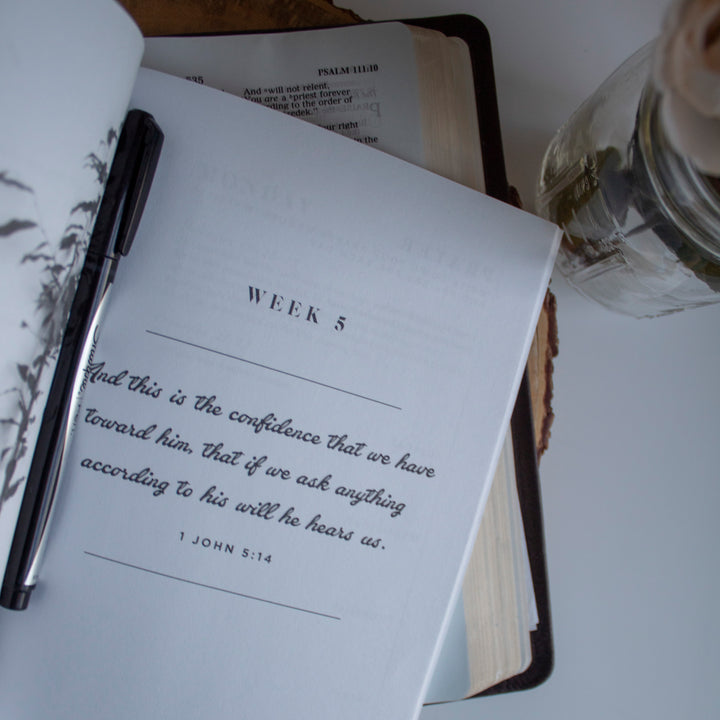 PSALM 111:10
And will not relent,
You are a priest forever
to the order of
your right
in the
WEEK 5
And this is the confidence that we have
toward him, that if we ask anything
according to his will he hears us.
1 JOHN 5:14